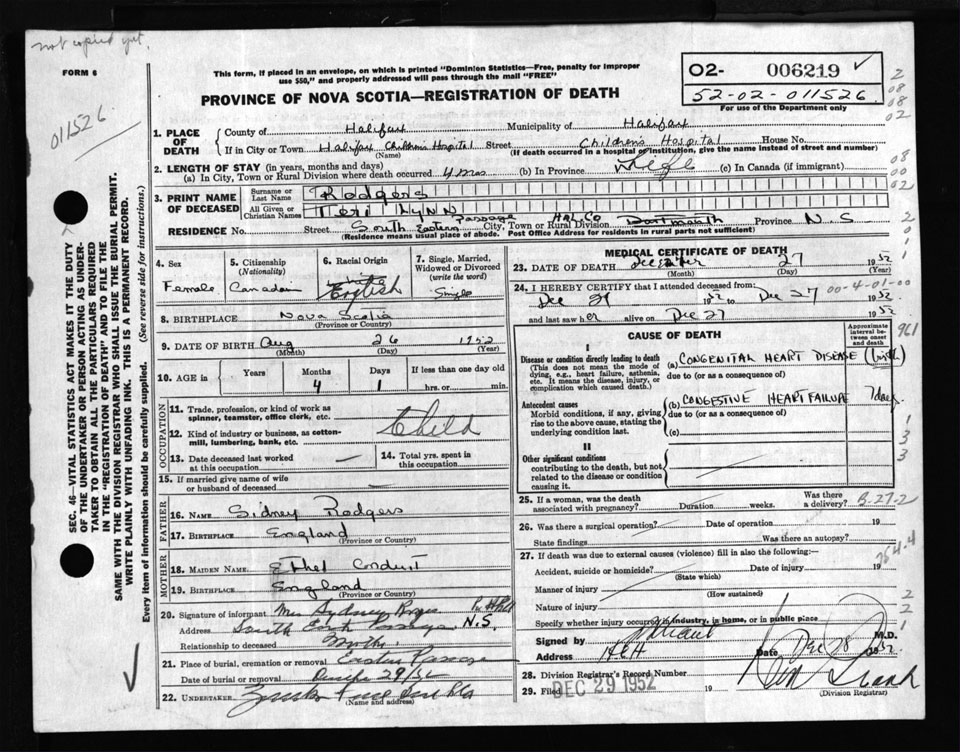 not copied yet.
FORM 6
011526
This form, if placed in an envelope, on which is printed "Dominion Statistics—Free, penalty for improper
use $50," and properly addressed will pass through the mail "FREE"
PROVINCE OF NOVA SCOTIA—REGISTRATION OF DEATH
O2- 006219
52-02-011526
For use of the Department only
1. PLACE OF DEATH
County of Halifax Municipality of Halifax
If in City or Town Halifax Children's Hospital Street Children's Hospital House No.
(Name) (If death occurred in a hospital or institution, give the name instead of street and number)
2. LENGTH OF STAY (in years, months and days)
(a) In City, Town or Rural Division where death occurred 4 mos (b) In Province Life (c) In Canada (if immigrant)
3. PRINT NAME OF DECEASED
Surname or Last Name Rodgers
All Given or Christian Names Teri Lynn
RESIDENCE No. Street South Eastern Passage HAL. CO City, Town or Rural Division Dartmouth Province N. S
(Residence means usual place of abode. Post Office Address for residents in rural parts not sufficient)
4. Sex Female
5. Citizenship (Nationality) Canadian
6. Racial Origin White English
7. Single, Married, Widowed or Divorced (write the word) Single
8. BIRTHPLACE Nova Scotia
(Province or Country)
9. DATE OF BIRTH Aug 26 1952
(Month) (Day) (Year)
10. AGE in Years Months 4 Days 1 If less than one day old hrs. or min.
OCCUPATION
11. Trade, profession, or kind of work as spinner, teamster, office clerk, etc. Child
12. Kind of industry or business, as cotton-mill, lumbering, bank, etc.
13. Date deceased last worked at this occupation —
14. Total yrs. spent in this occupation
15. If married give name of wife or husband of deceased —
FATHER
16. NAME Sidney Rodgers
17. BIRTHPLACE England
(Province or Country)
MOTHER
18. MAIDEN NAME Ethel Conduit
19. BIRTHPLACE England
(Province or Country)
20. Signature of informant Mrs Sydney
Address South East Passage N.S.
Relationship to deceased Mother.
21. Place of burial, cremation or removal Eastern Passage
Date of burial or removal 29/52
22. UNDERTAKER
(Name and address)
MEDICAL CERTIFICATE OF DEATH
23. DATE OF DEATH December 27 1952
(Month) (Day) (Year)
24. I HEREBY CERTIFY that I attended deceased from:
Dec 21 1952 to Dec 27 1952
00-4-01-00
and last saw her alive on Dec 27 1952
CAUSE OF DEATH
Approximate interval between onset and death
961
I
Disease or condition directly leading to death
(This does not mean the mode of dying, e.g., heart failure, asthenia, etc. It means the disease, injury, or complication which caused death.)
(a) CONGENITAL HEART DISEASE (birth)
due to (or as a consequence of)
Antecedent causes
Morbid conditions, if any, giving rise to the above cause, stating the underlying condition last.
(b) CONGESTIVE HEART FAILURE 7 days
due to (or as a consequence of)
(c)
II
Other significant conditions
contributing to the death, but not related to the disease or condition causing it.
25. If a woman, was the death associated with pregnancy? Duration weeks. Was there a delivery? B-27-2
26. Was there a surgical operation? Date of operation 19
State findings Was there an autopsy?
27. If death was due to external causes (violence) fill in also the following:
754.4
Accident, suicide or homicide? Date of injury 19
(State which)
Manner of injury
(How sustained)
Nature of injury
Specify whether injury occurred in industry, in home, or in public place
Signed by M.D.
Address HCH Date Dec 28 1952
28. Division Registrar's Record Number
29. Filed DEC 29 1952 19
(Division Registrar)
SEC. 46—VITAL STATISTICS ACT MAKES IT THE DUTY
OF THE UNDERTAKER OR PERSON ACTING AS UNDER-
TAKER TO OBTAIN ALL THE PARTICULARS REQUIRED
IN THE "REGISTRATION OF DEATH" AND TO FILE THE
SAME WITH THE DIVISION REGISTRAR WHO SHALL ISSUE THE BURIAL PERMIT.
WRITE PLAINLY WITH UNFADING INK. THIS IS A PERMANENT RECORD.
Every item of information should be carefully supplied. (See reverse side for instructions.)